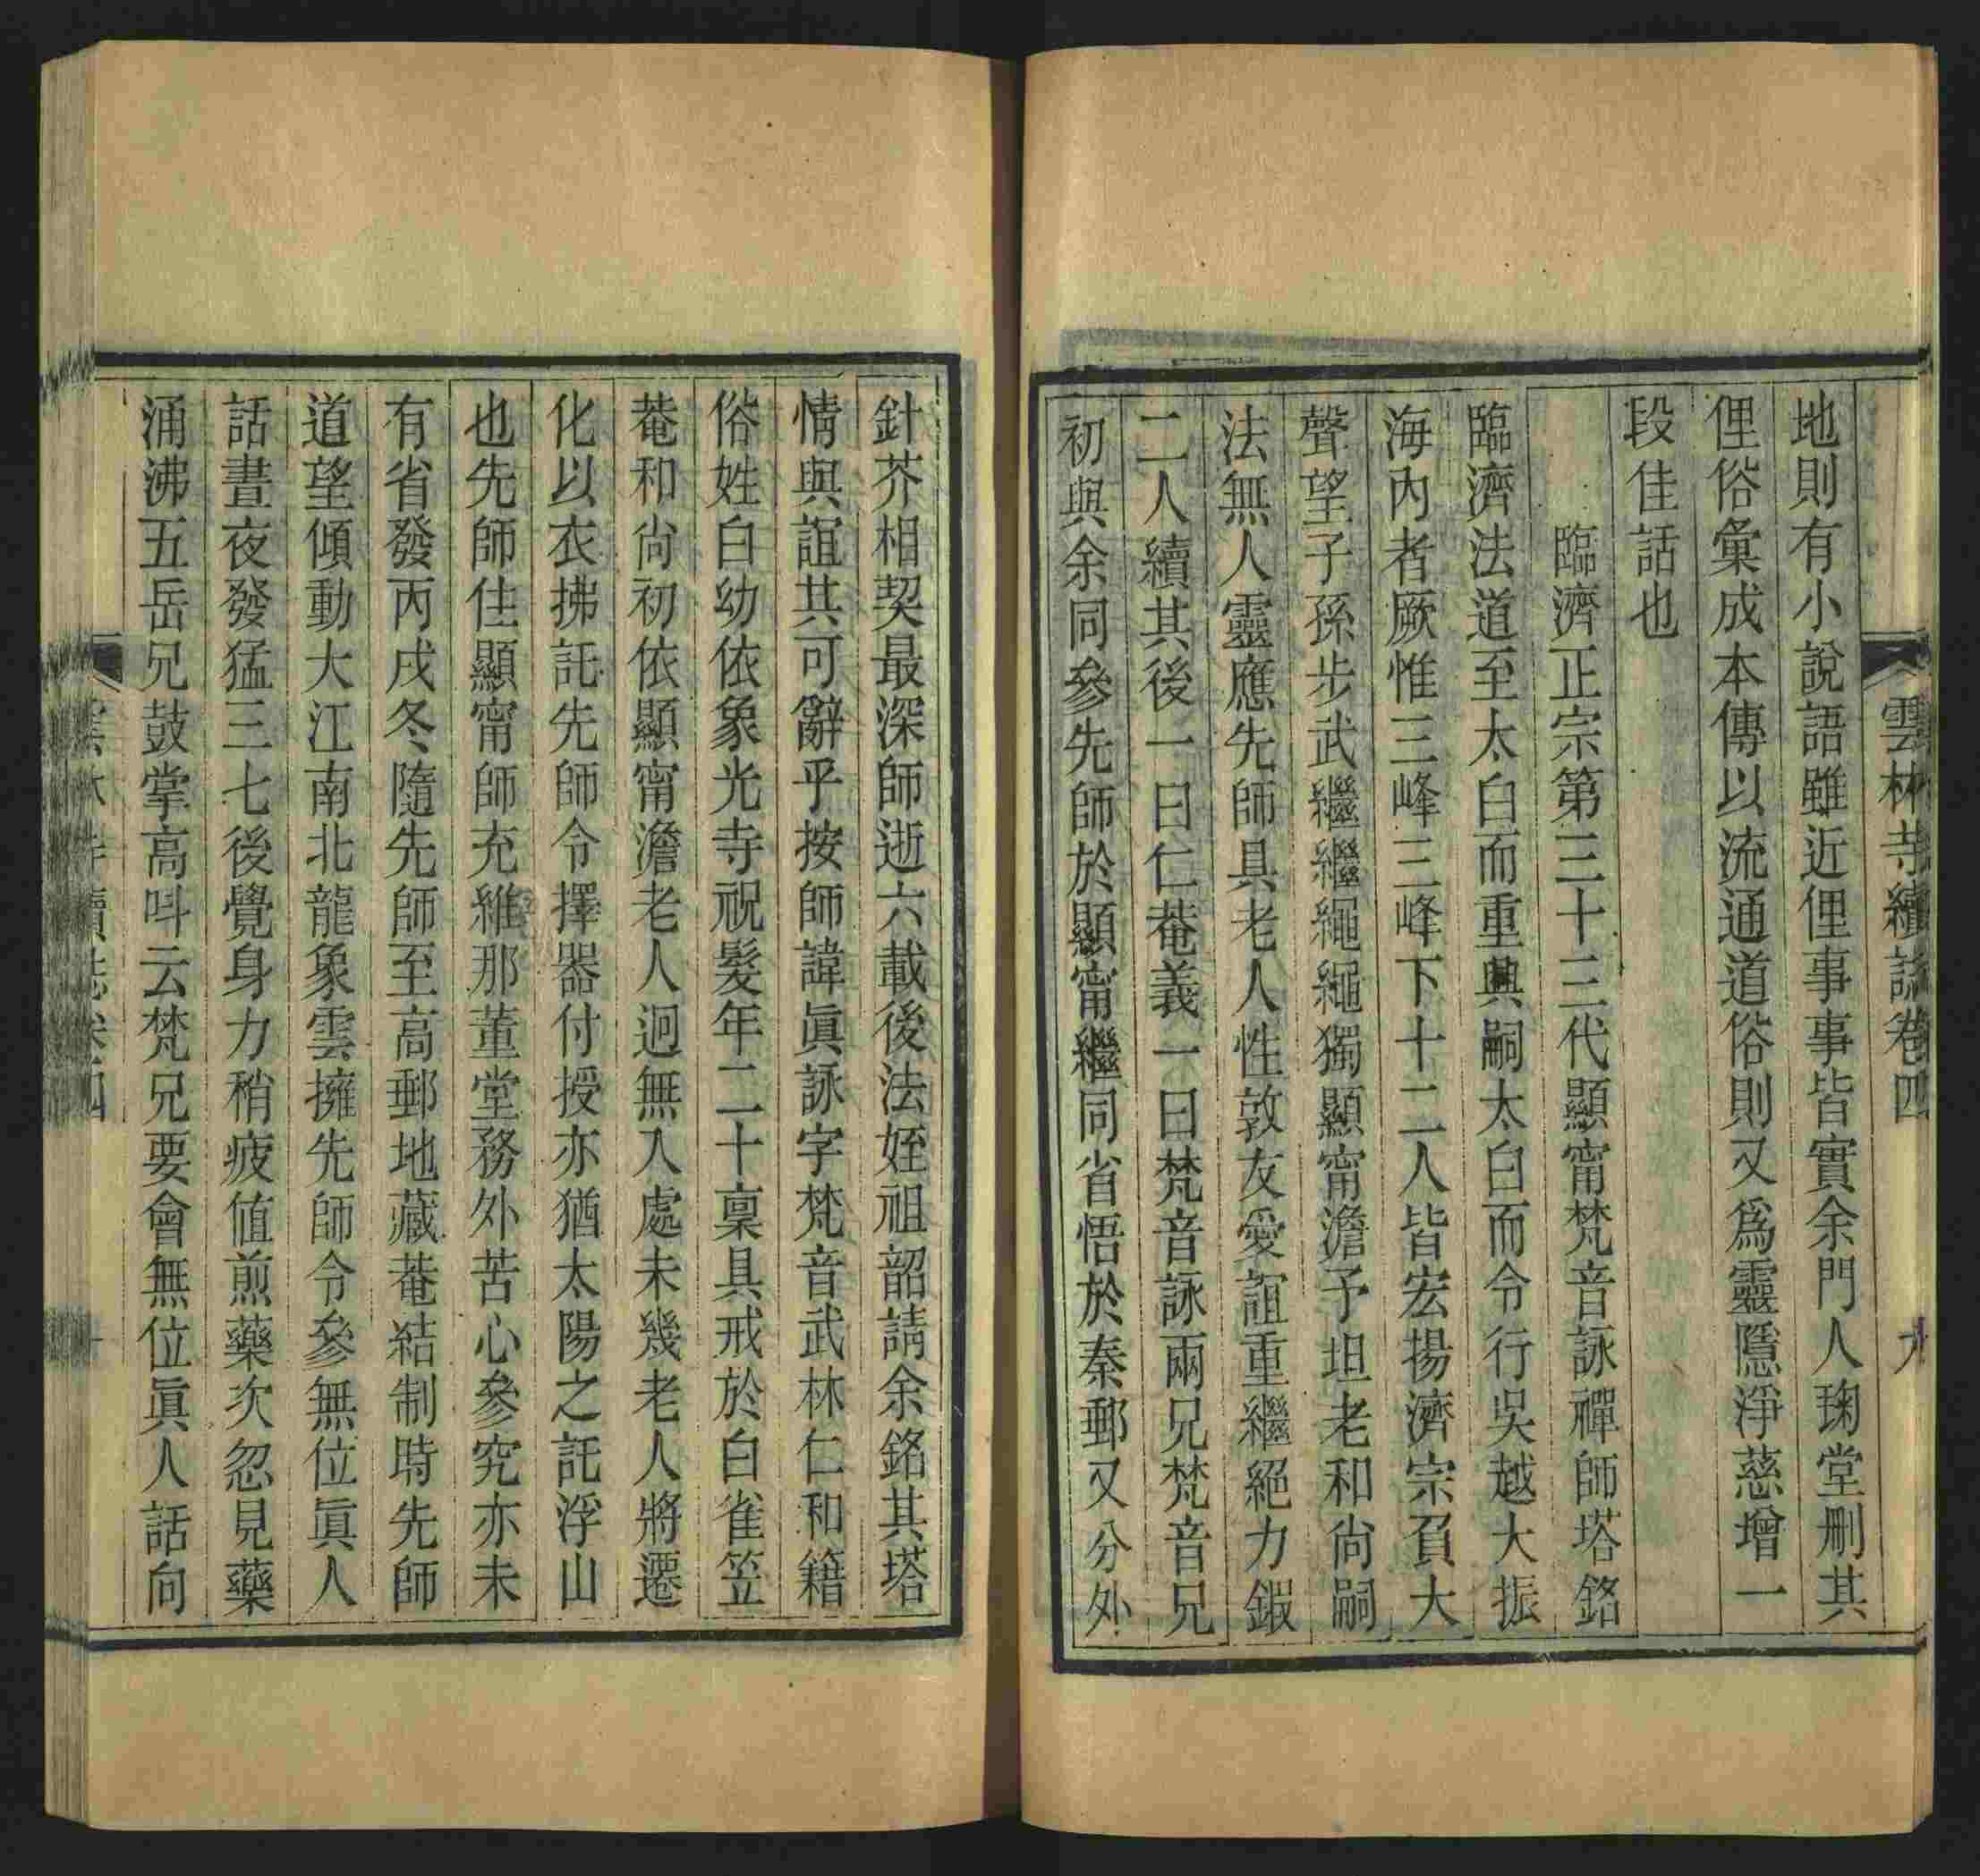 雲林寺續誌卷四
九
地則有小說語雖近俚事事皆實余門人琡堂删其
俚俗彙成本傳以流通道俗則又爲靈隱淨慈增一
段佳話也
臨濟正宗第三十三代顯甯梵音詠禪師塔銘
臨濟法道至太白而重興嗣太白而令行吳越大振
海內者厥惟三峰三峰下十二人皆宏揚濟宗負大
聲望子孫步武繼繼繩繩獨顯甯澹予坦老和尙嗣
法無人靈應先師具老人性敦友愛誼重繼絕力鍜
二人續其後一曰仁菴義一曰梵音詠兩兄梵音兄
初與余同參先師於顯甯繼同省悟於秦郵又分外
針芥相契最深師逝六載後法姪祖韶請余銘其塔
情與誼其可辭乎按師諱眞詠字梵音武林仁和籍
俗姓白幼依象光寺祝髮年二十稟具戒於白雀笠
菴和尙初依顯甯澹老人迥無入處未幾老人將遷
化以衣拂託先師令擇器付授亦猶太陽之託浮山
也先師住顯甯師充維那董堂務外苦心參究亦未
有省發丙戌冬隨先師至高郵地藏菴結制時先師
道望傾動大江南北龍象雲擁先師令參無位眞人
話晝夜發猛三七後覺身力稍疲値煎藥次忽見藥
涌沸五岳兄鼓掌高呌云梵兄要會無位眞人話向